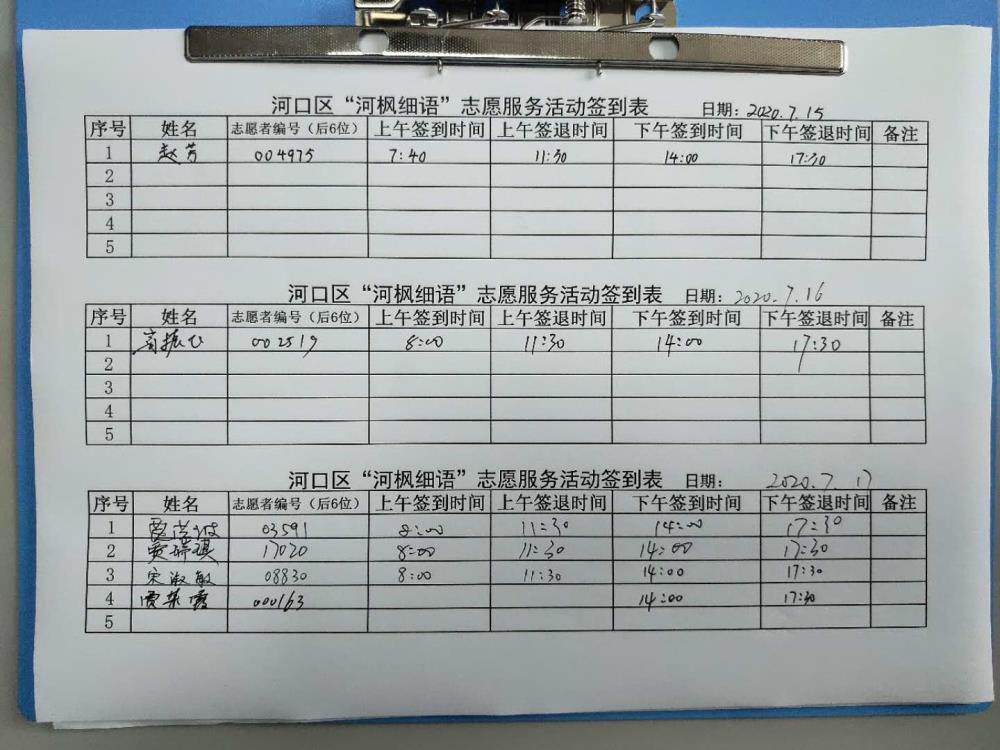 河口区“河枫细语”志愿服务活动签到表 日期：2020.7.15
序号 姓名 志愿者编号（后6位） 上午签到时间 上午签退时间 下午签到时间 下午签退时间 备注
1 赵芳 004975 7:40 11:30 14:00 17:30
2
3
4
5
河口区“河枫细语”志愿服务活动签到表 日期：2020.7.16
序号 姓名 志愿者编号（后6位） 上午签到时间 上午签退时间 下午签到时间 下午签退时间 备注
1 002519 8:00 11:30 14:00 17:30
2
3
4
5
河口区“河枫细语”志愿服务活动签到表 日期：2020.7.17
序号 姓名 志愿者编号（后6位） 上午签到时间 上午签退时间 下午签到时间 下午签退时间 备注
1 03591 8:00 11:30 14:00 17:30
2 17020 8:00 11:30 14:00 17:30
3 宋淑敏 08830 8:00 11:30 14:00 17:30
4 000163 14:00 17:30
5